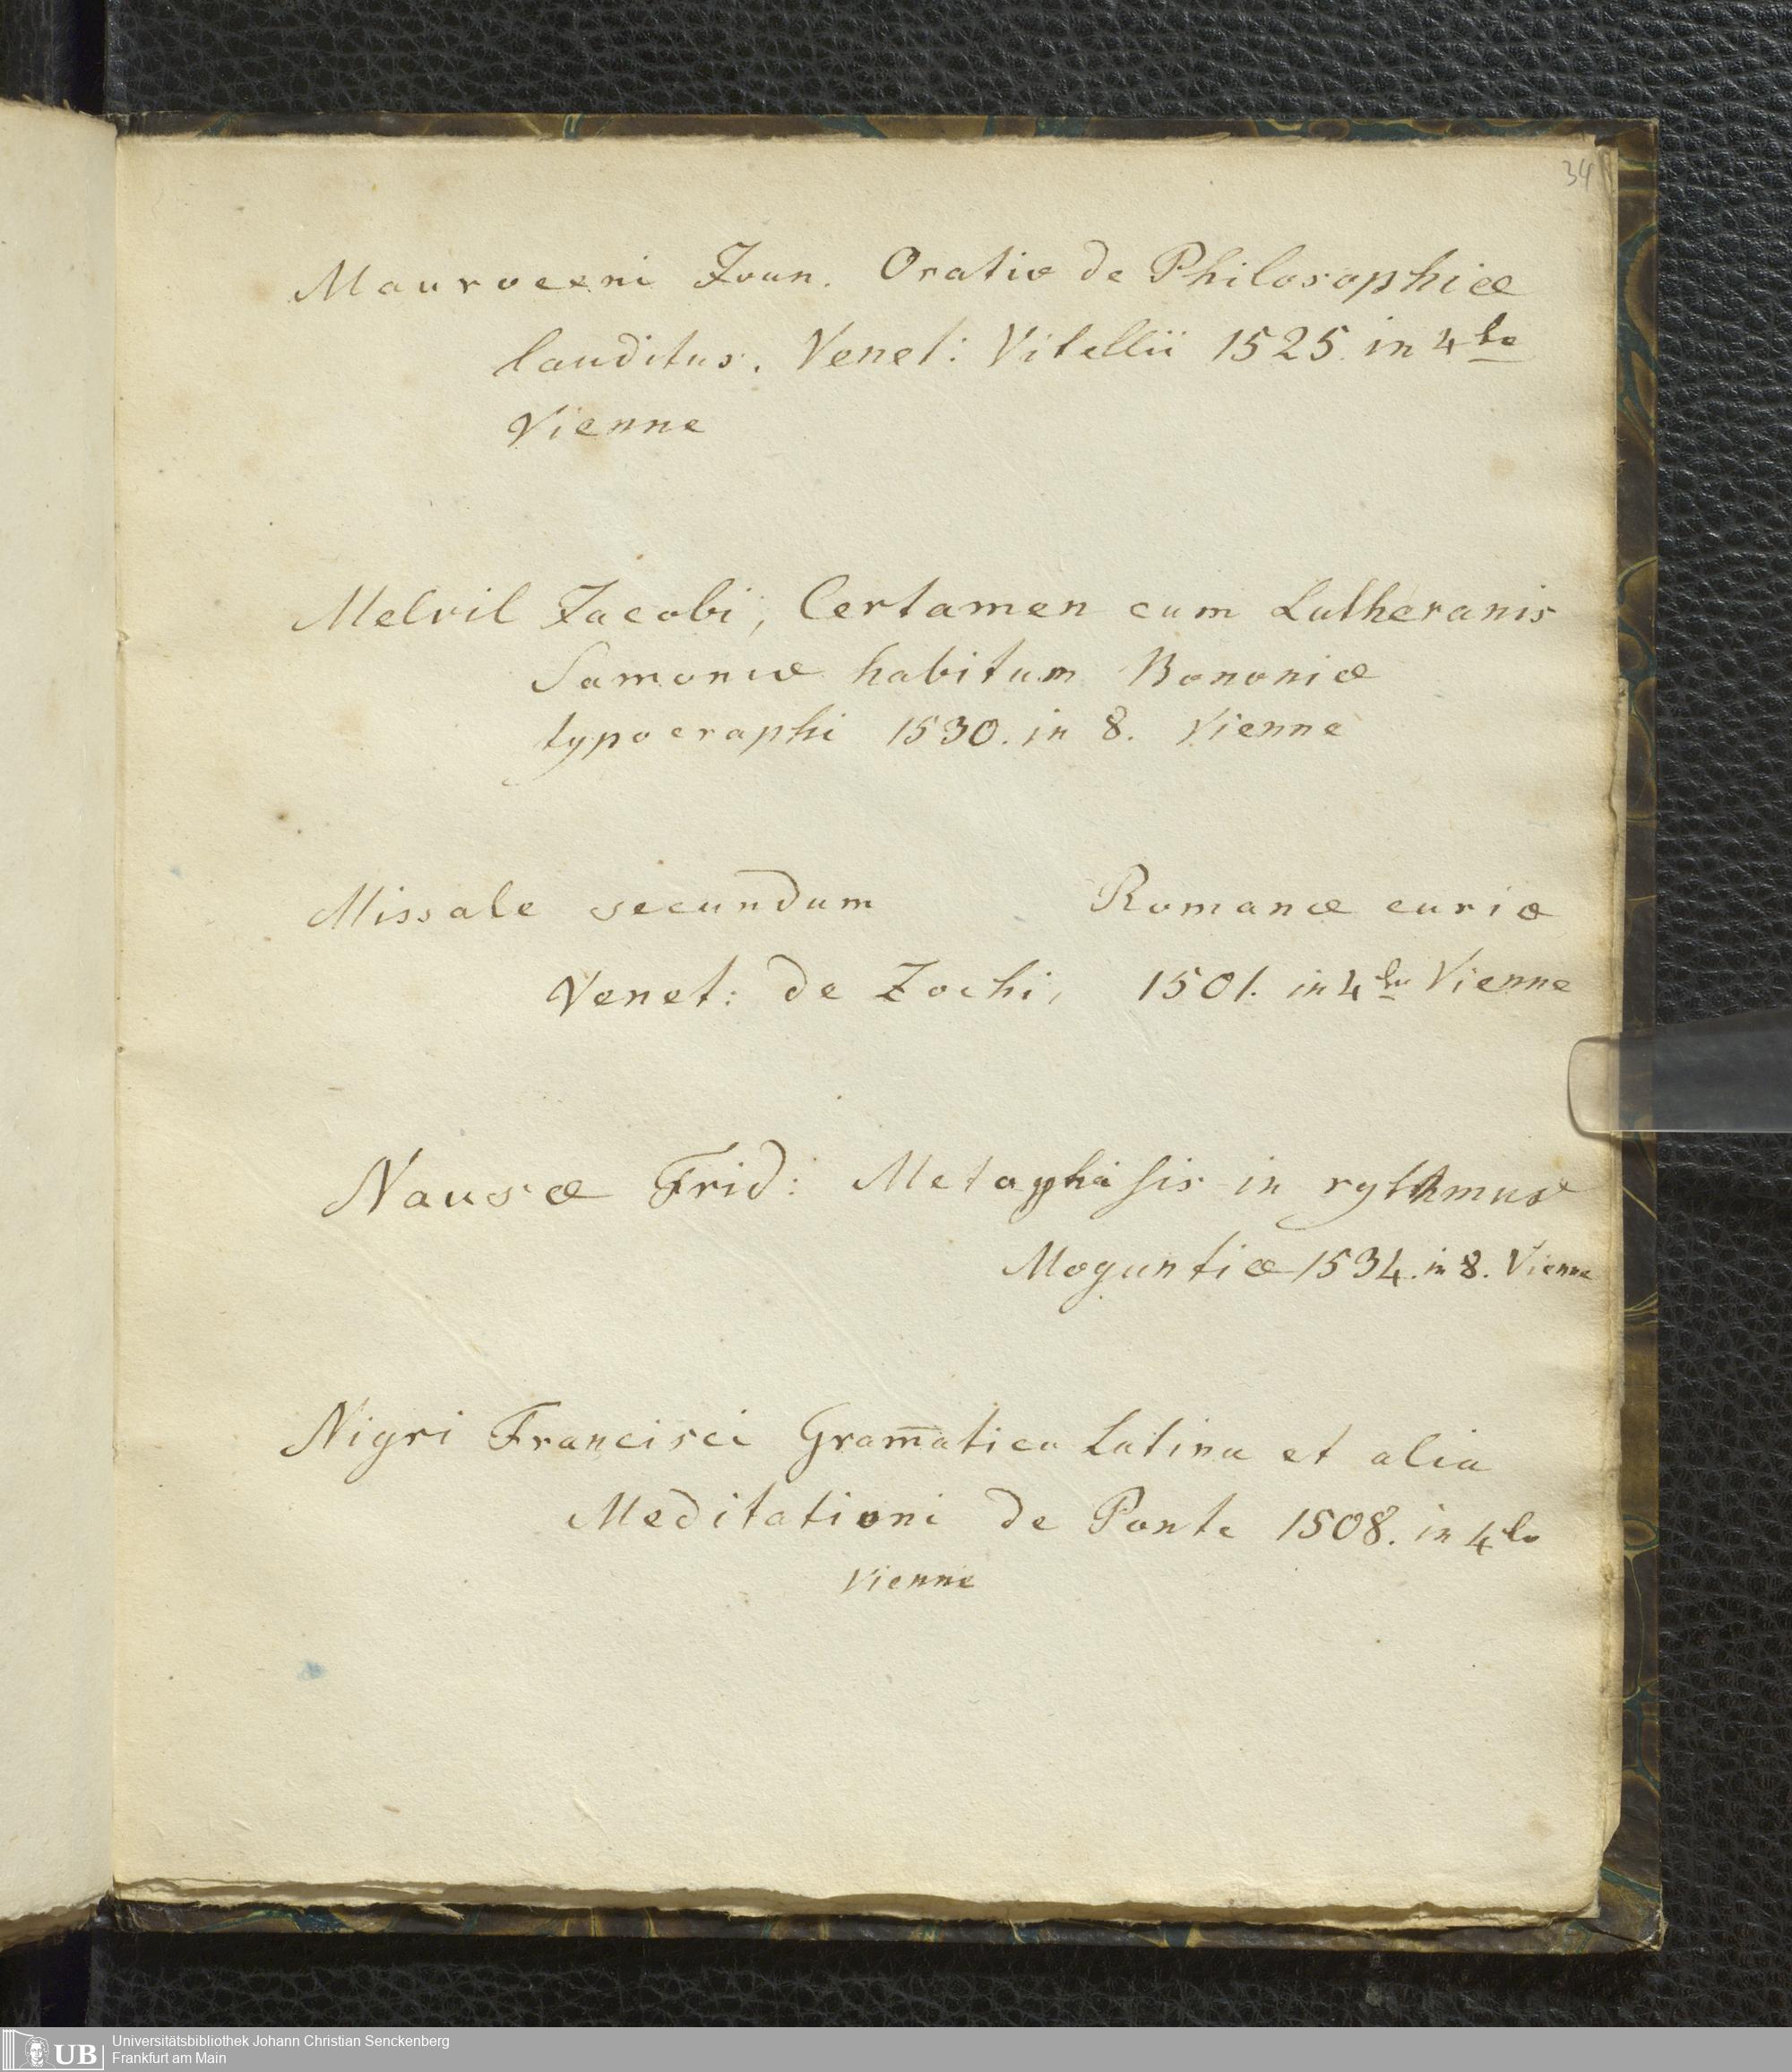 34
Mauroceni Joan. Oratio de Philosophiæ
lauditus. Venet: Vitellii 1525. in 4to
Vienne
Melvil Jacobi, Certamen cum Lutheranis
Samoniæ habitum Bononiæ
typoeraphi 1530. in 8. Vienne
Missale secundum Romanæ curiæ
Venet: de Zochi, 1501. in 4to Vienne
Nausæ Frid: Metaphisis in rythmus
Moguntiæ 1534. in 8. Vienne
Nigri Francisci Gram̄atica Latina et alia
Meditationi de Ponte 1508. in 4to
Vienne
UB Universitätsbibliothek Johann Christian Senckenberg
Frankfurt am Main